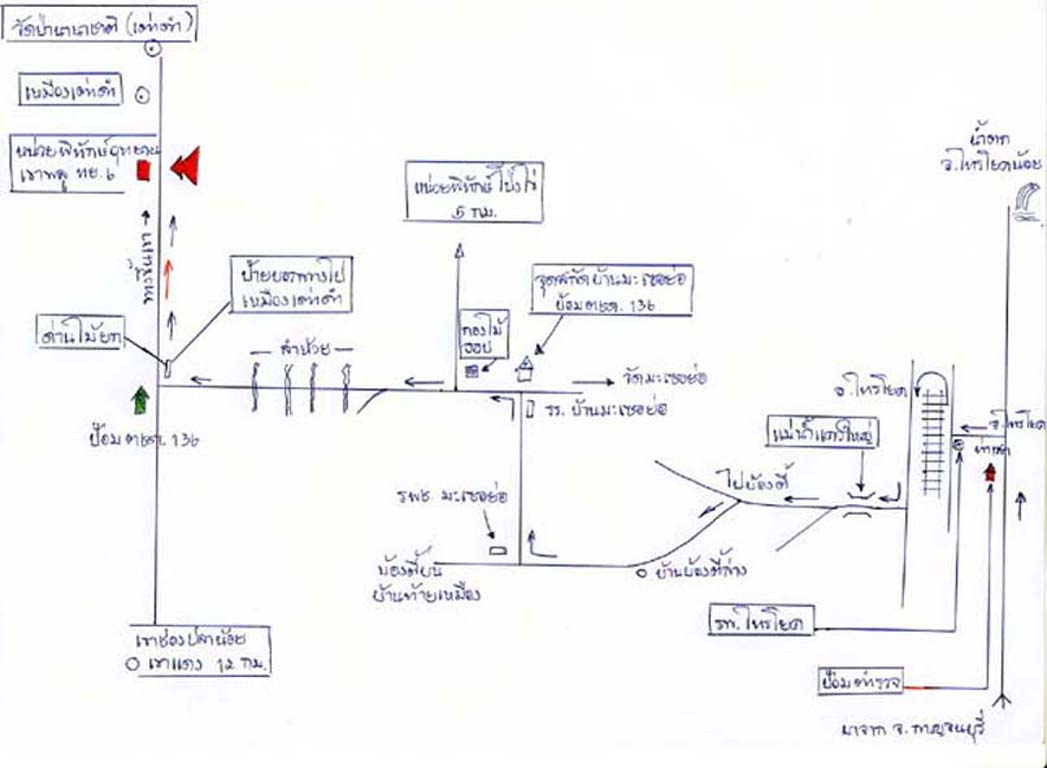 วัดป่านานาชาติ (เต่าดำ)
เหมืองเต่าดำ
หน่วยพิทักษ์อุทยาน
เขาพลู ทย. 6
ด่านไม้ยก
ป้ายบอกทางไป
เหมืองเต่าดำ
ลำห้วย
ป้อม ตชด. 136
เขาช่องปลาน้อย
เขาแดง 12 กม.
หน่วยพิทักษ์ โป่งไข่
5 กม.
กองไม้
จุดสกัดบ้านมะเซอย่อ
ป้อม ตชด. 136
วัดมะเซอย่อ
รร. บ้านมะเซอย่อ
รพช. มะเซอย่อ
บ้องตี้บน
บ้านท้ายเหมือง
ไปบ้องตี้
บ้านบ้องตี้ล่าง
แม่น้ำแควใหญ่
อ.ไทรโยค
น้ำตก
อ.ไทรโยคน้อย
อ.ไทรโยค
รพ. ไทรโยค
ป้อมตำรวจ
มาจาก จ. กาญจนบุรี